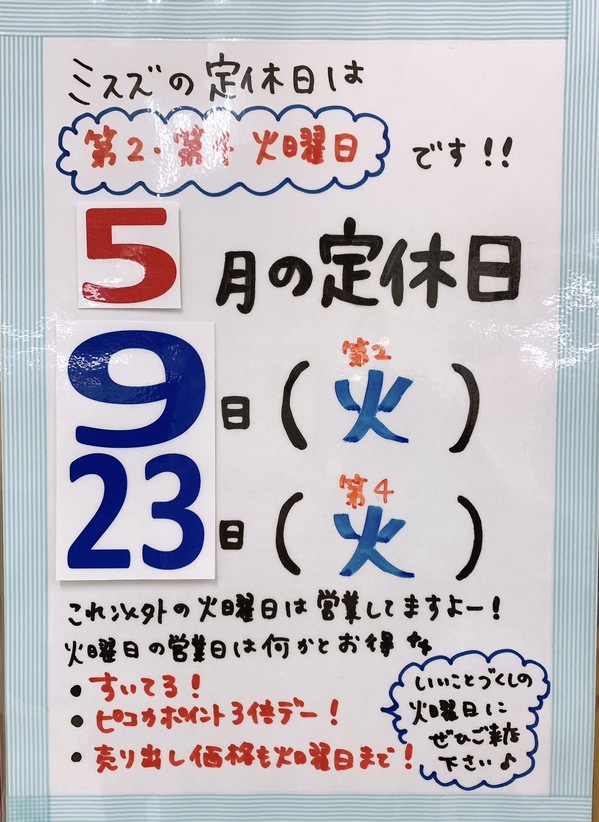 ミスズの定休日は
第2・第4 火曜日 です!!
5月の定休日
9日(第2火)
23日(第4火)
これ以外の火曜日は営業してますよー!
火曜日の営業日は何かとお得
• すいてる!
• ピコカポイント3倍デー!
• 売り出し価格も火曜日まで!
いいことづくしの
火曜日に
ぜひご来店
下さい♪